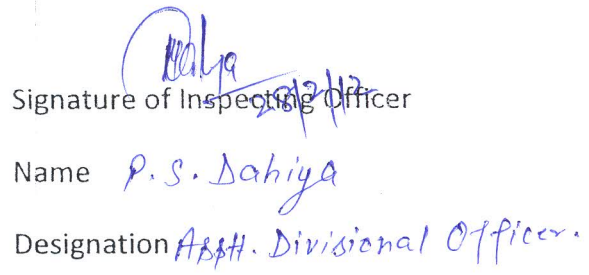 Dahiya
28/2/12
Signature of Inspecting Officer
Name P. S. Dahiya
Designation Asstt. Divisional Officer.